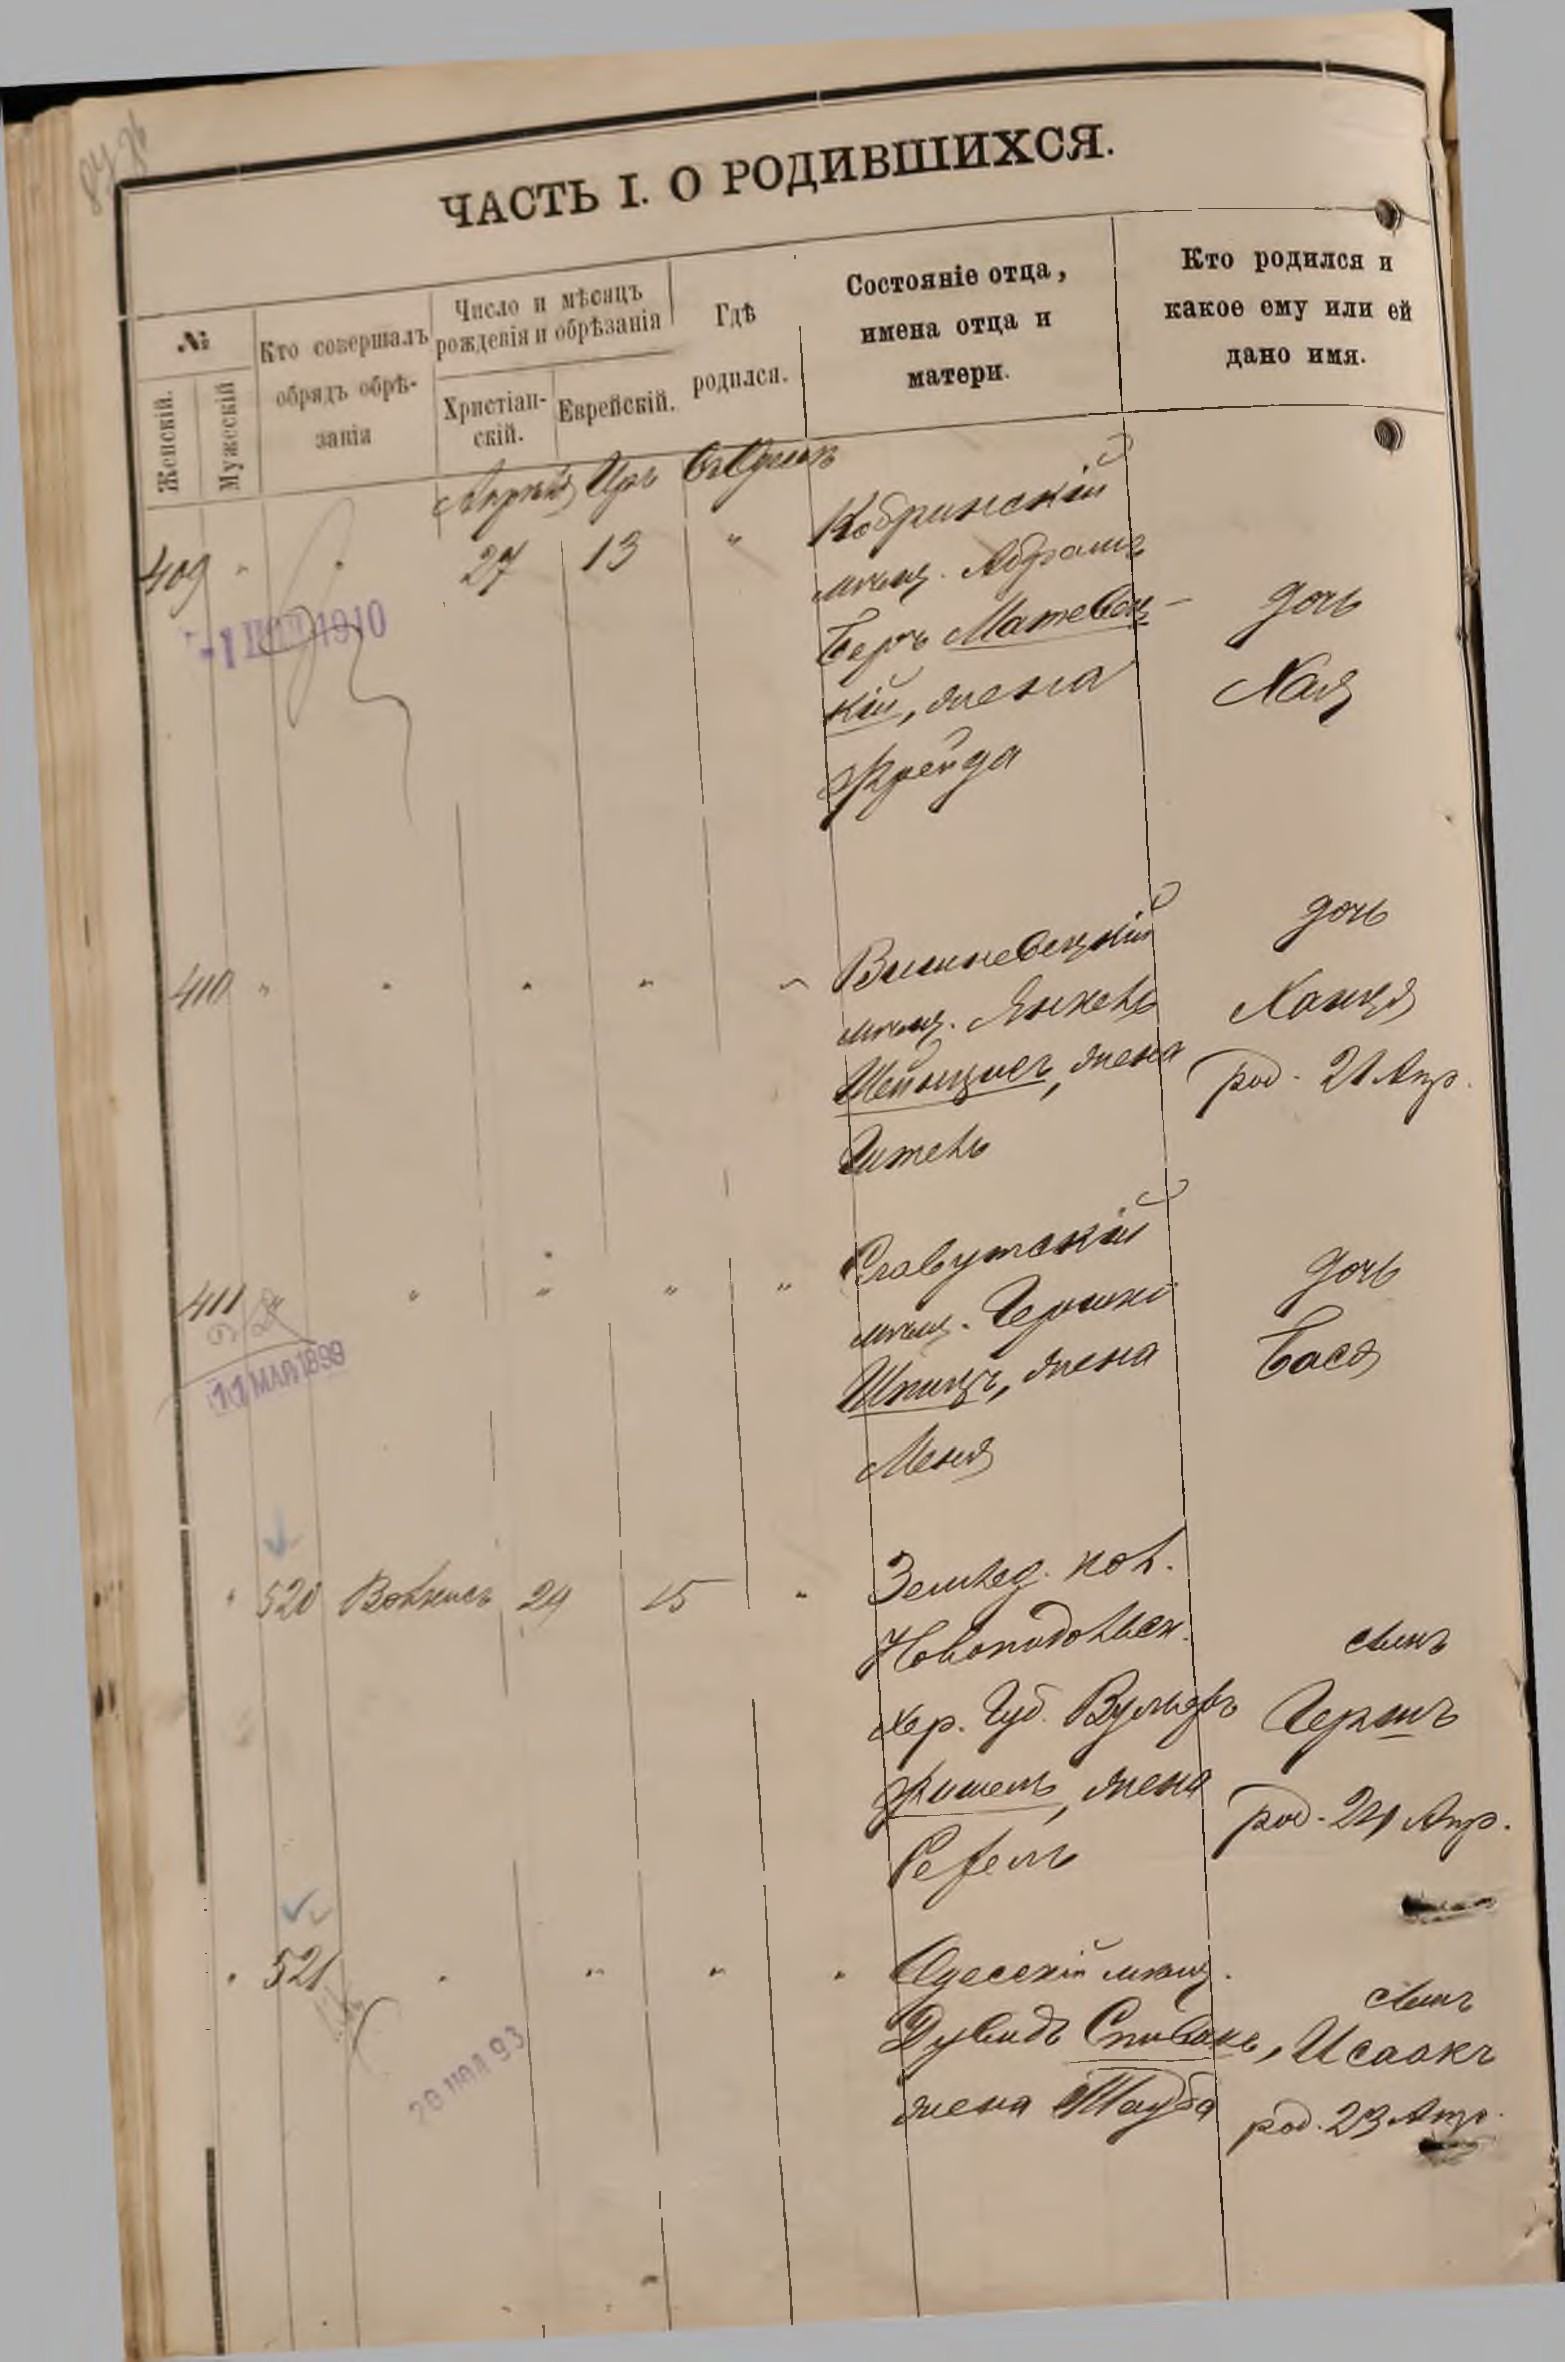 ЧАСТЬ I. О РОДИВШИХСЯ.
№
Женскій.
Мужескій
Кто совершалъ
обрядъ обрѣ-
занія
Число и мѣсяцъ
рожденія и обрѣзанія
Христіан-
скій.
Еврейскій.
Гдѣ
родился.
Состояніе отца,
имена отца и
матери.
Кто родился и
какое ему или ей
дано имя.
Апрѣля Іяръ Въ Одессѣ
409 " " 27 13 " Кобринскій
мѣщ. Абрамъ
Беръ Матевец-
кій, жена
Фрейда
дочь
Хая
1910
410 " " " " " Вишневецкій
мѣщ. Янкель
жена
Гитель
дочь
Ханця
род. 21 Апр.
411 " " " " " Славутскій
мѣщ. Гершко
Шпицъ, жена
Меня
дочь
Бася
11 МАЯ 1899
" 520 29 15 " Землед. кол.
Новоподольск.
Хер. Губ. Вульфъ
Фишель, жена
Рефель
сынъ
Гершъ
род. 24 Апр.
" 521 " " " " Одесскій мѣщ.
Дувидъ Спивакъ,
жена Тауба
сынъ
Исаакъ
род. 23 Апр.
93